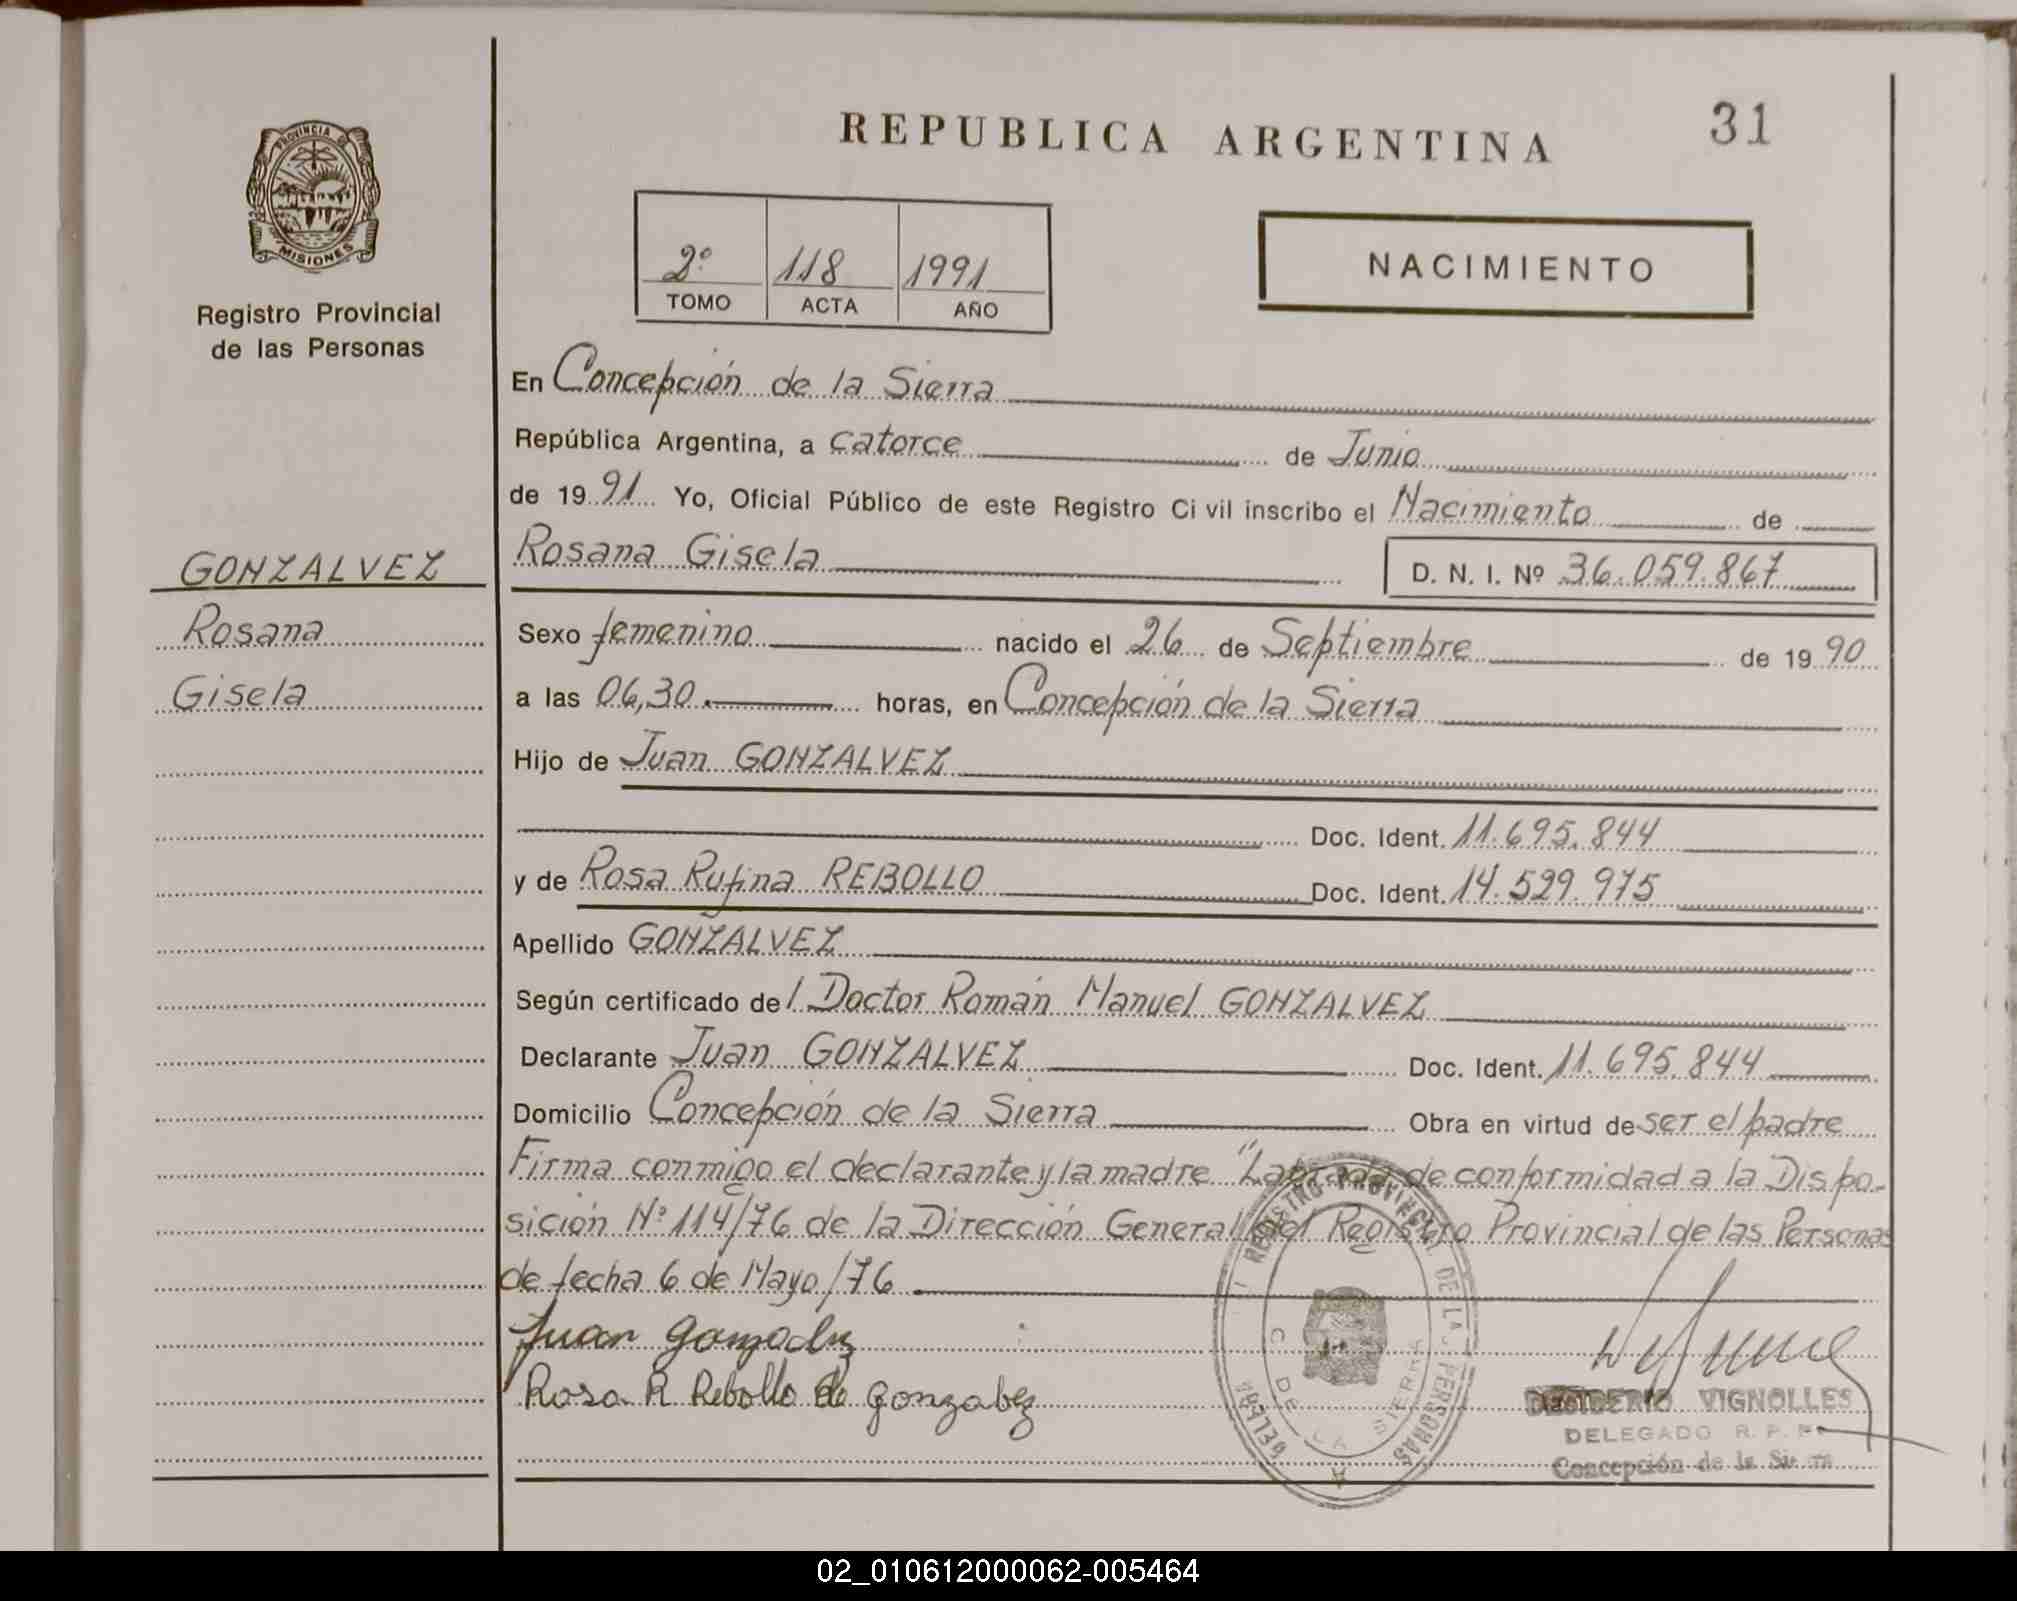 REPUBLICA ARGENTINA
31
PROVINCIA D
MISIONES
Registro Provincial
de las Personas
2º 118 1991
TOMO ACTA AÑO
NACIMIENTO
En Concepción de la Sierra
República Argentina, a catorce de Junio
de 19 91 Yo, Oficial Público de este Registro Civil inscribo el Nacimiento de
Rosana Gisela D. N. I. Nº 36.059.867
GONZALVEZ
Rosana
Gisela
Sexo femenino nacido el 26 de Septiembre de 19 90
a las 06,30 horas, en Concepción de la Sierra
Hijo de Juan GONZALVEZ
Doc. Ident. 11.695.844
y de Rosa Rufina REBOLLO Doc. Ident. 14.529.975
Apellido GONZALVEZ
Según certificado del Doctor Román Manuel GONZALVEZ
Declarante Juan GONZALVEZ Doc. Ident. 11.695.844
Domicilio Concepción de la Sierra Obra en virtud de ser el padre
Firma conmigo el declarante y la madre "Labrada de conformidad a la Dispo-
sición Nº 114/76 de la Dirección General del Registro Provincial de las Personas
de fecha 6 de Mayo/76
Juan Gonzalvez
Rosa R Rebollo de Gonzalvez
REGISTRO PROVINCIAL DE LAS PERSONAS
C. DE LA SIERRA
DESIDERIO VIGNOLLES
DELEGADO R. P. P.
Concepción de la Sierra
02_010612000062-005464